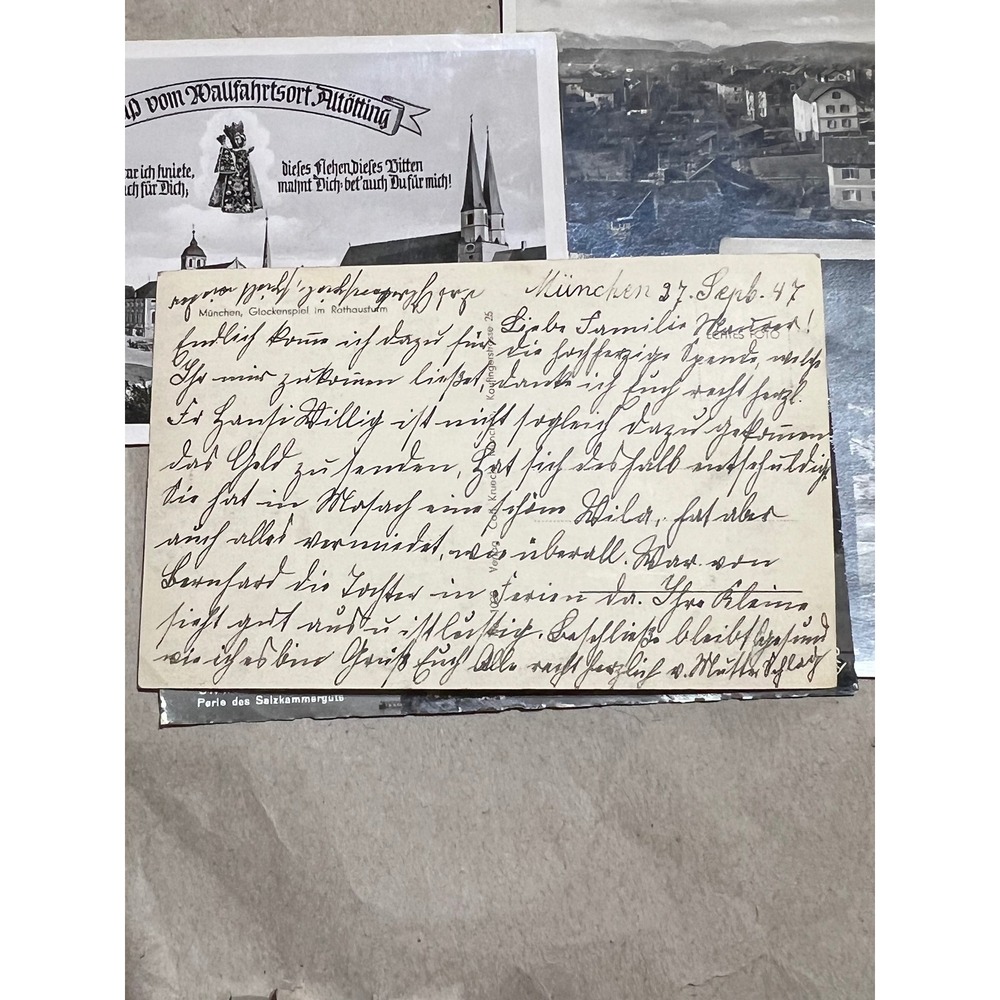 ß vom Wallfahrtsort Altötting
ar ich kniete,
ch für Dich;
dieses Flehen dieses Bitten
mahnt Dich: bet' auch Du für mich!
München 27. Sept. 47
München, Glockenspiel im Rathausturm
ECHTES FOTO
Liebe Familie Maurer!
Endlich komme ich dazu für die hochherzige Spende, welche
Ihr mir zukommen ließet, danke ich Euch recht herzl.
Fr Hansi Willig ist nicht sogleich dazu gekommen
das Geld zu senden, hat sich deshalb entschuldigt
Sie hat in Mosach eine schöne, hat aber
auch alles vermietet, wie überall. War von
Bernhard die Tochter in Ferien da. Ihre Kleine
sieht gut aus u ist lustig. Beschließe bleibt gesund
wie ich es bin Grüß Euch Alle recht herzlich v. Mutter
Verlag Carl Kruock, München Kaufingerstrasse 25
Perle des Salzkammerguts